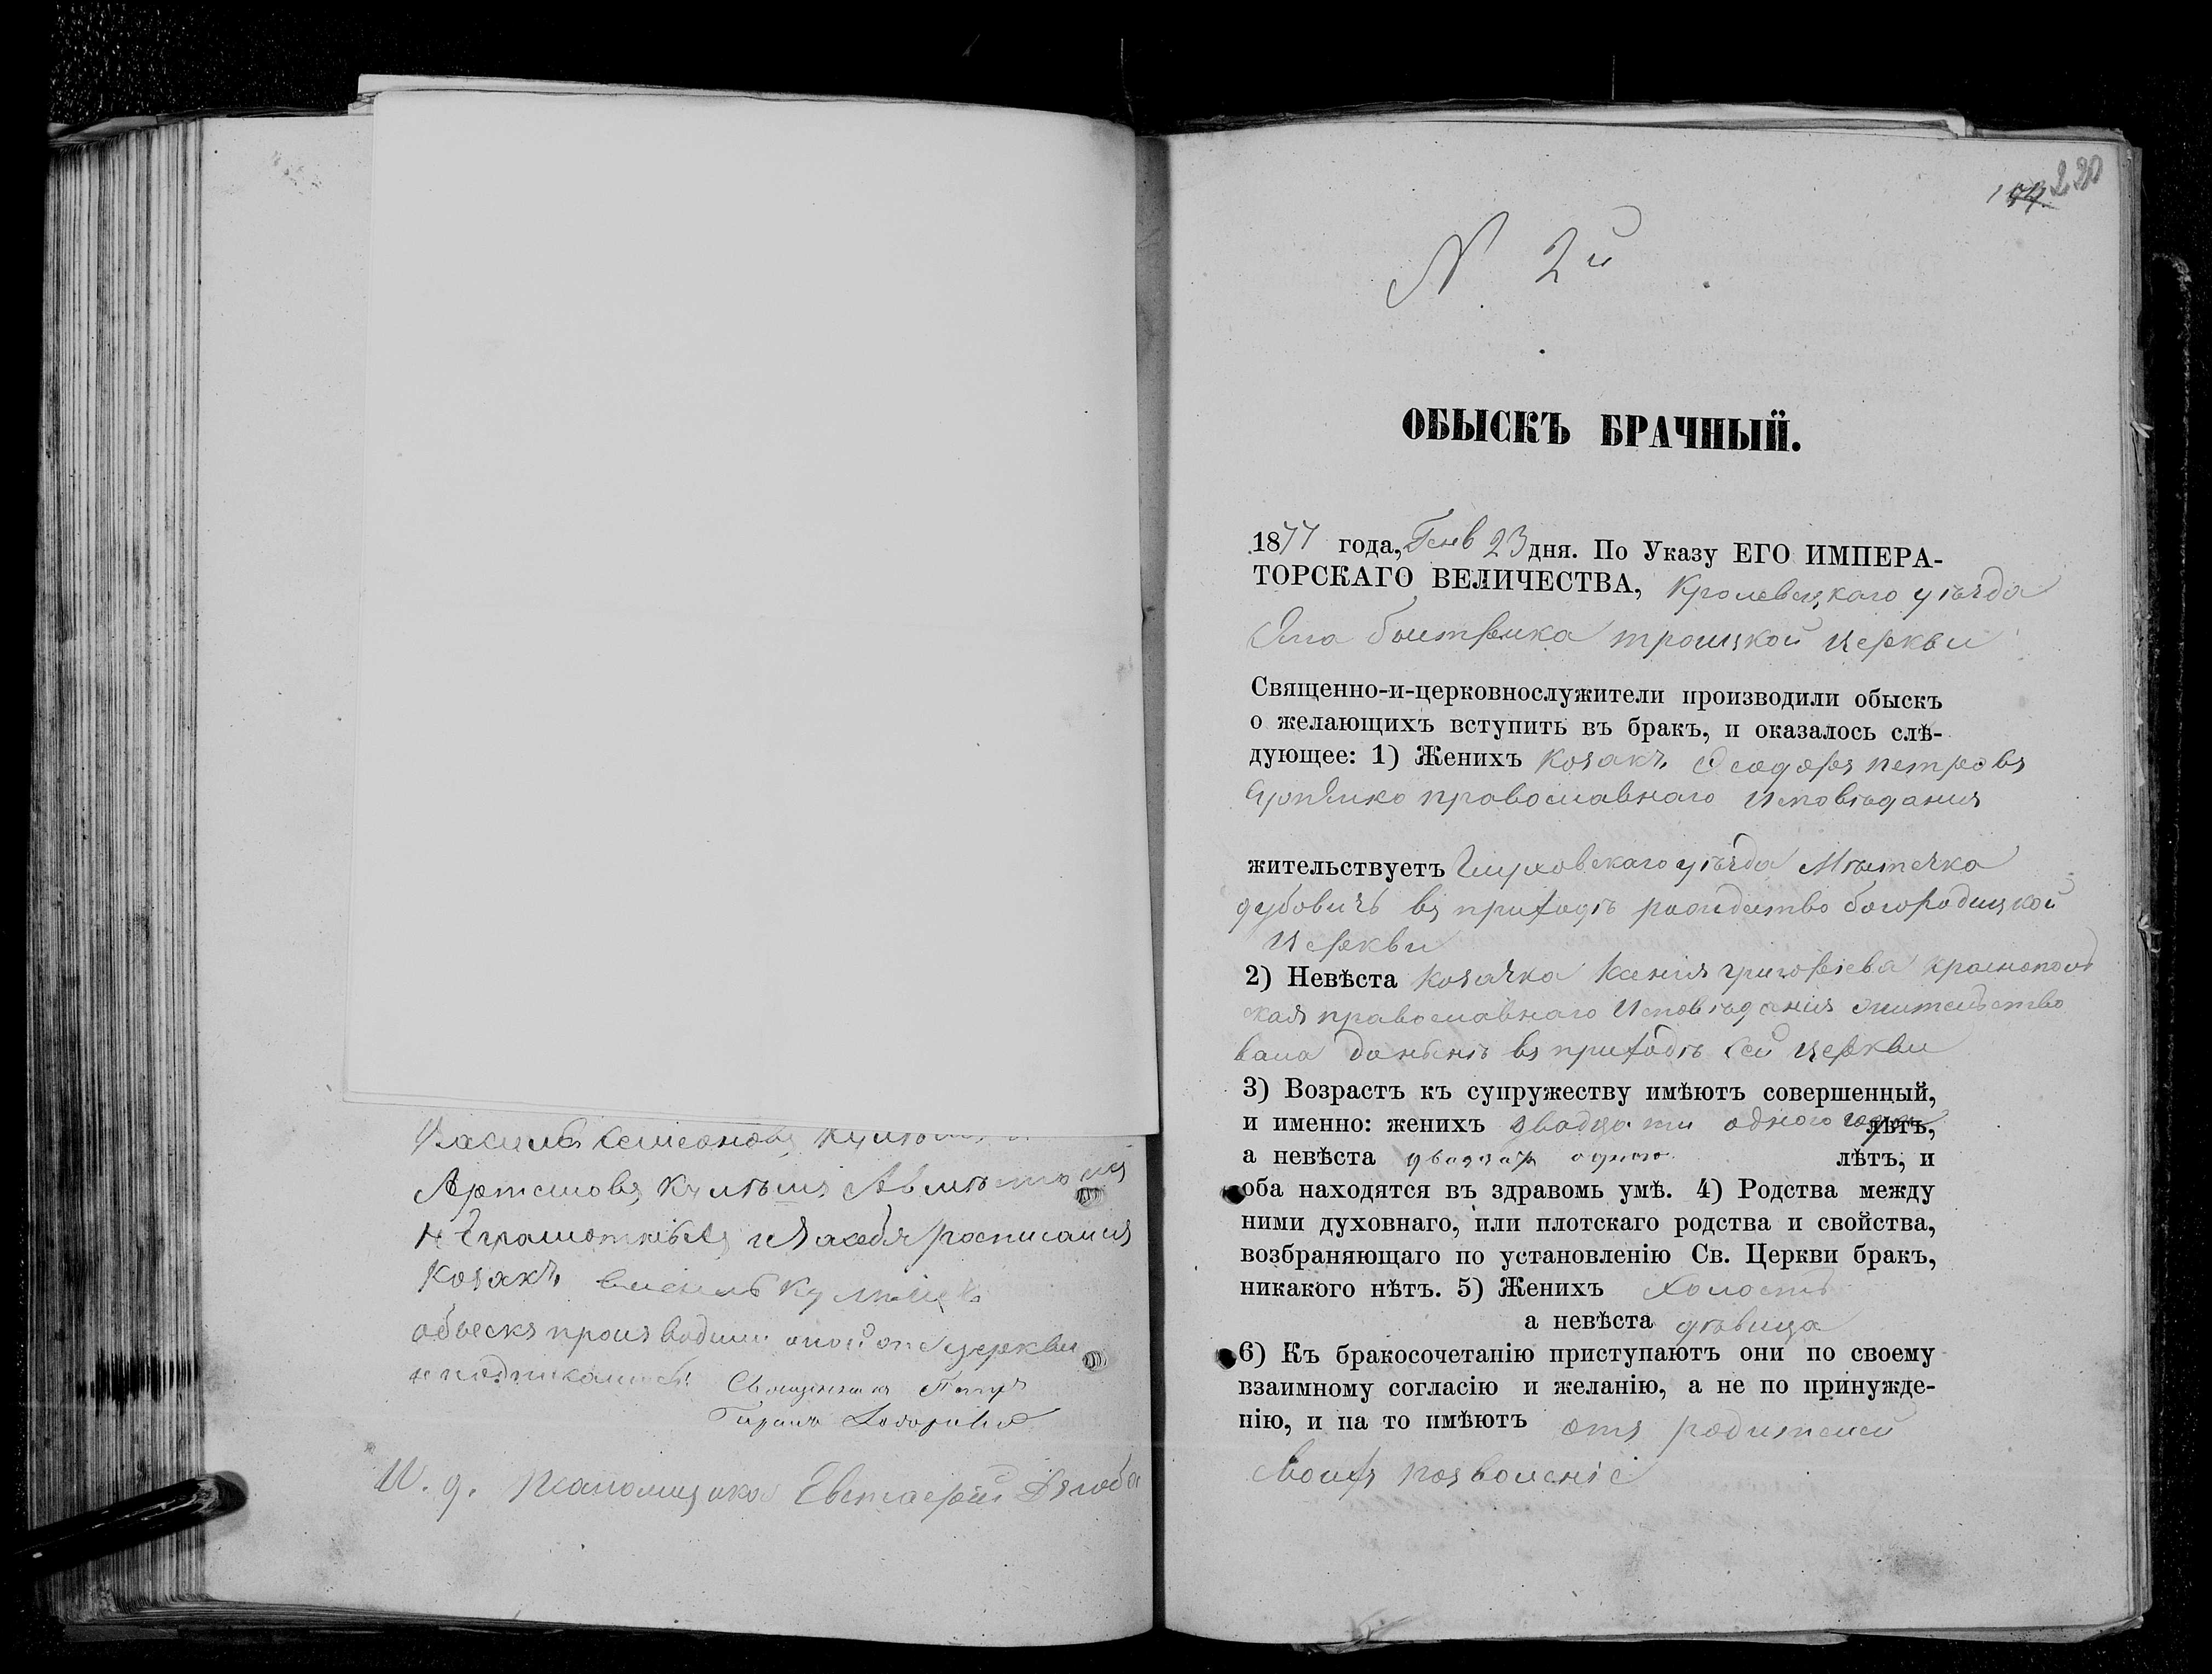 Артемовъ
неграмотны
росписался
Козакъ
церкви
Священникъ Петръ
И. д. Евстафій
220
N 2й
ОБЫСКЪ БРАЧНЫЙ.
1877 года, Генв 23 дня. По Указу ЕГО ИМПЕРА-
ТОРСКАГО ВЕЛИЧЕСТВА, Кролевецкаго уѣзда
троицкой церкви
Священно-и-церковнослужители производили обыскъ
о желающихъ вступить въ бракъ, и оказалось слѣ-
дующее: 1) Женихъ козакъ Феодоръ петровъ
православнаго Исповѣданія
жительствуетъ Глуховскаго уѣзда Мѣстечка
дубовичь въ приходѣ рождество богородицкой
церкви
2) Невѣста козачка Ксенія григоріева краснополь
ская православнаго Исповѣданія жительство
вала донынѣ въ приходѣ сей церкви
3) Возрастъ къ супружеству имѣютъ совершенный,
и именно: женихъ двадцати одного года лѣтъ,
а невѣста одного лѣтъ, и
оба находятся въ здравомъ умѣ. 4) Родства между
ними духовнаго, или плотскаго родства и свойства,
возбраняющаго по установленію Св. Церкви бракъ,
никакого нѣтъ. 5) Женихъ холостъ
а невѣста дѣвица
6) Къ бракосочетанію приступаютъ они по своему
взаимному согласію и желанію, а не по принужде-
нію, и на то имѣютъ отъ родителей
своихъ позволеніе